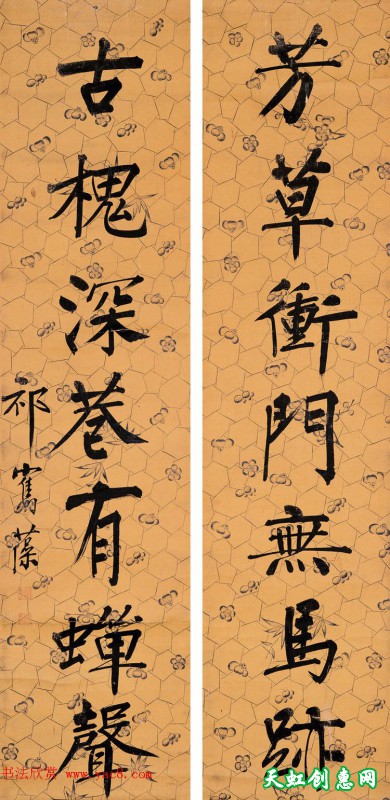 芳草衡門無馬跡
古槐深巷有蟬聲
祁寯藻
书法欣赏
天虹创惠网